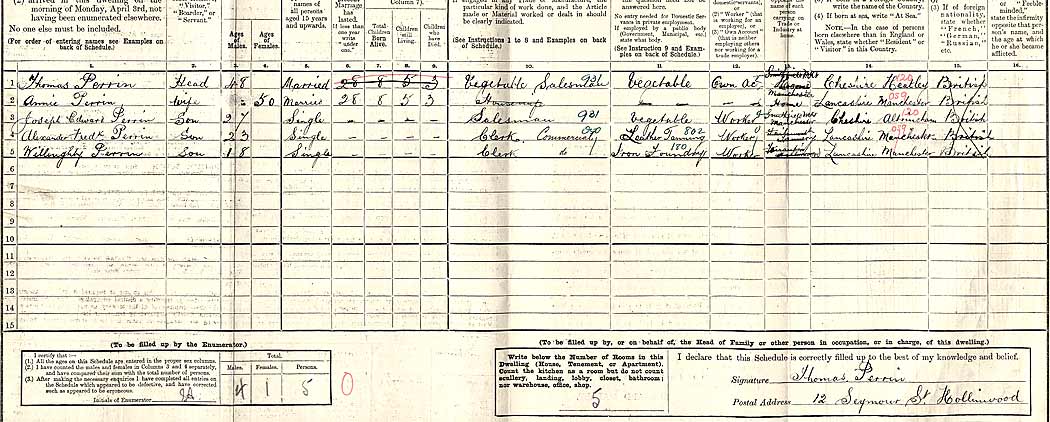 (2) arrived in this dwelling on the
morning of Monday, April 3rd, not
having been enumerated elsewhere.
No one else must be included.
(For order of entering names see Examples on
back of Schedule.)
"Visitor,"
"Boarder," or
"Servant."
Ages
of
Males.
Ages
of
Females.
names of
all persons
aged 15 years
and upwards.
Marriage
has
lasted.
If less than
one year
write
"under
one."
Total
Children
Born
Alive.
Children
still
Living.
Children
who
have
Died.
Column 7).
particular kind of work done, and the Article
made or Material worked or dealt in should
be clearly indicated.
(See Instructions 1 to 8 and Examples on back
of Schedule.)
answered here.
No entry needed for Domestic Service
in private employment.
(See Instruction 9 and Examples
on back of Schedule.)
(2) "Worker" (that
is working for an
employer), or
(3) "Own Account"
(that is neither
employing others
nor working for a
trade employer).
carrying on
Trade or
Industry at
home.
write the name of the County.
(4) If born at sea, write "At Sea."
NOTE.—In the case of persons
born elsewhere than in England or
Wales, state whether "Resident" or
"Visitor" in this Country.
(3) If of foreign
nationality,
state whether
"French,"
"German,"
"Russian,"
etc.
or "Feeble-
minded,"
state the infirmity
opposite that person's
name, and
the age at which
he or she became
afflicted.
1. 2. 3. 4. 5. 6. 7. 8. 9. 10. 11. 12. 13. 14. 15. 16.
1 Thomas Perrin Head 48 Married 28 8 5 3 Vegetable Salesman 921 Vegetable Own Ac Cheshire British
2 Annie Perrin Wife - 50 Married 28 8 5 3 — — — Home Lancashire Manchester British
3 Joseph Edward Perrin Son 27 Single Salesman 921 Vegetable Worker Cheshire Altrincham British
4 Alexander Fredk Perrin Son 23 Single Clerk Commercial Leather Tanning 802 Worker Lancashire Manchester British
5 Willoughby Perrin Son 18 Single Clerk do Iron Foundry 180 Worker Lancashire Manchester British
6
7
8
9
10
11
12
13
14
15
(To be filled up by the Enumerator.)
I certify that:—
(1.) All the ages on this Schedule are entered in the proper sex columns.
(2.) I have counted the males and females in Columns 3 and 4 separately,
and have compared their sum with the total number of persons.
(3.) After making the necessary enquiries I have completed all entries on
the Schedule which appeared to be defective, and have corrected
such as appeared to be erroneous.
Initials of Enumerator
Total.
Males. Females. Persons.
4 1 5
0
(To be filled up by, or on behalf of, the Head of Family or other person in occupation, or in charge, of this dwelling.)
Write below the Number of Rooms in this
Dwelling (House, Tenement, or Apartment).
Count the kitchen as a room but do not count
scullery, landing, lobby, closet, bathroom;
nor warehouse, office, shop.
5
I declare that this Schedule is correctly filled up to the best of my knowledge and belief.
Signature Thomas Perrin
Postal Address 12 Seymour St Hollinwood